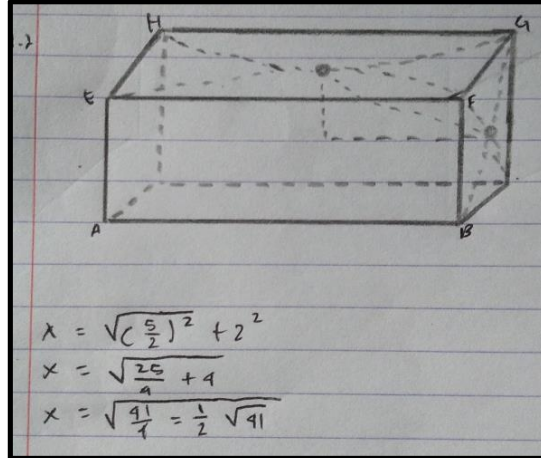 .2
H
G
E
F
A
B
x = √(5/2)² + 2²
x = √25/4 + 4
x = √41/4 = 1/2 √41